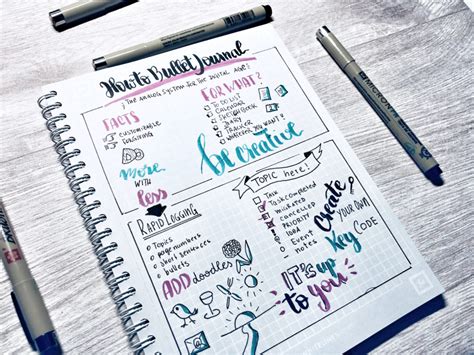 How to Bullet Journal
{ THE ANALOG SYSTEM FOR THE DIGITAL AGE }
FACTS
customizable
forgiving
More
WITH
less
FOR WHAT?
TO DO LIST
CALENDAR
SKETCHBOOK
DIARY
TRACKER
WHATEVER YOU WANT?
be creative
RAPID LOGGING
Topics
page numbers
short sentences
bullets
ADD doodles
TOPIC here!
TASK
Task completed
migrated
cancelled
PRIORITY
IDEA
Event
notes
Create
YOUR OWN
Key
CODE
IT'S up
to you!
MICRON